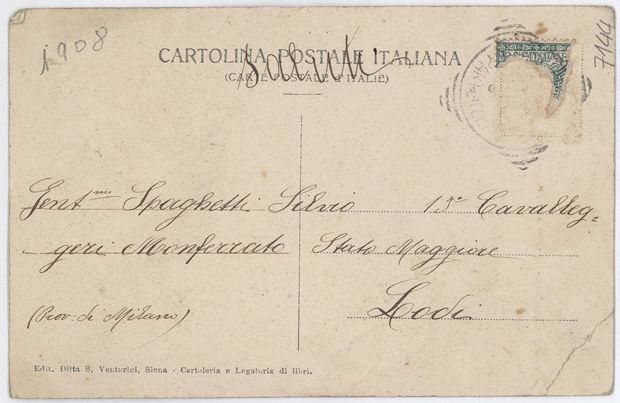 1908
7144
CARTOLINA POSTALE ITALIANA
(CARTE POSTALE D'ITALIE)
Gent.mo Spaghetti Silvio 13° Cavalleg-
geri Monferrato Stato Maggiore
Lodi
(Prov: di Milano)
Edit. Ditta S. Venturini, Siena - Cartoleria e Legatoria di libri.